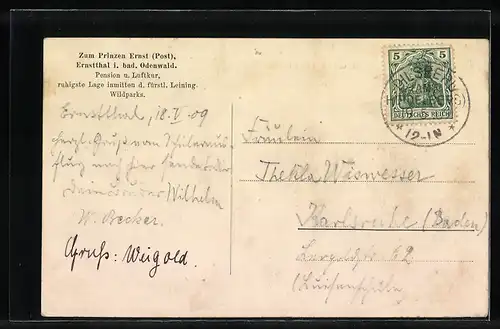 Zum Prinzen Ernst (Post),
Ernstthal i. bad. Odenwald.
Pension u. Luftkur,
ruhigste Lage inmitten d. fürstl. Leining.
Wildparks.
Ernstthal, 18. V. 09
herzl. Gruß von Schüleraus-
flug nach hier sendet
Wilhelm
W. Becker.
Gruß: Weigold.
5 5
DEUTSCHES REICH
12-1N
Fräulein
Thekla Waswesser
Karlsruhe (Baden)
Leopoldstr. 62